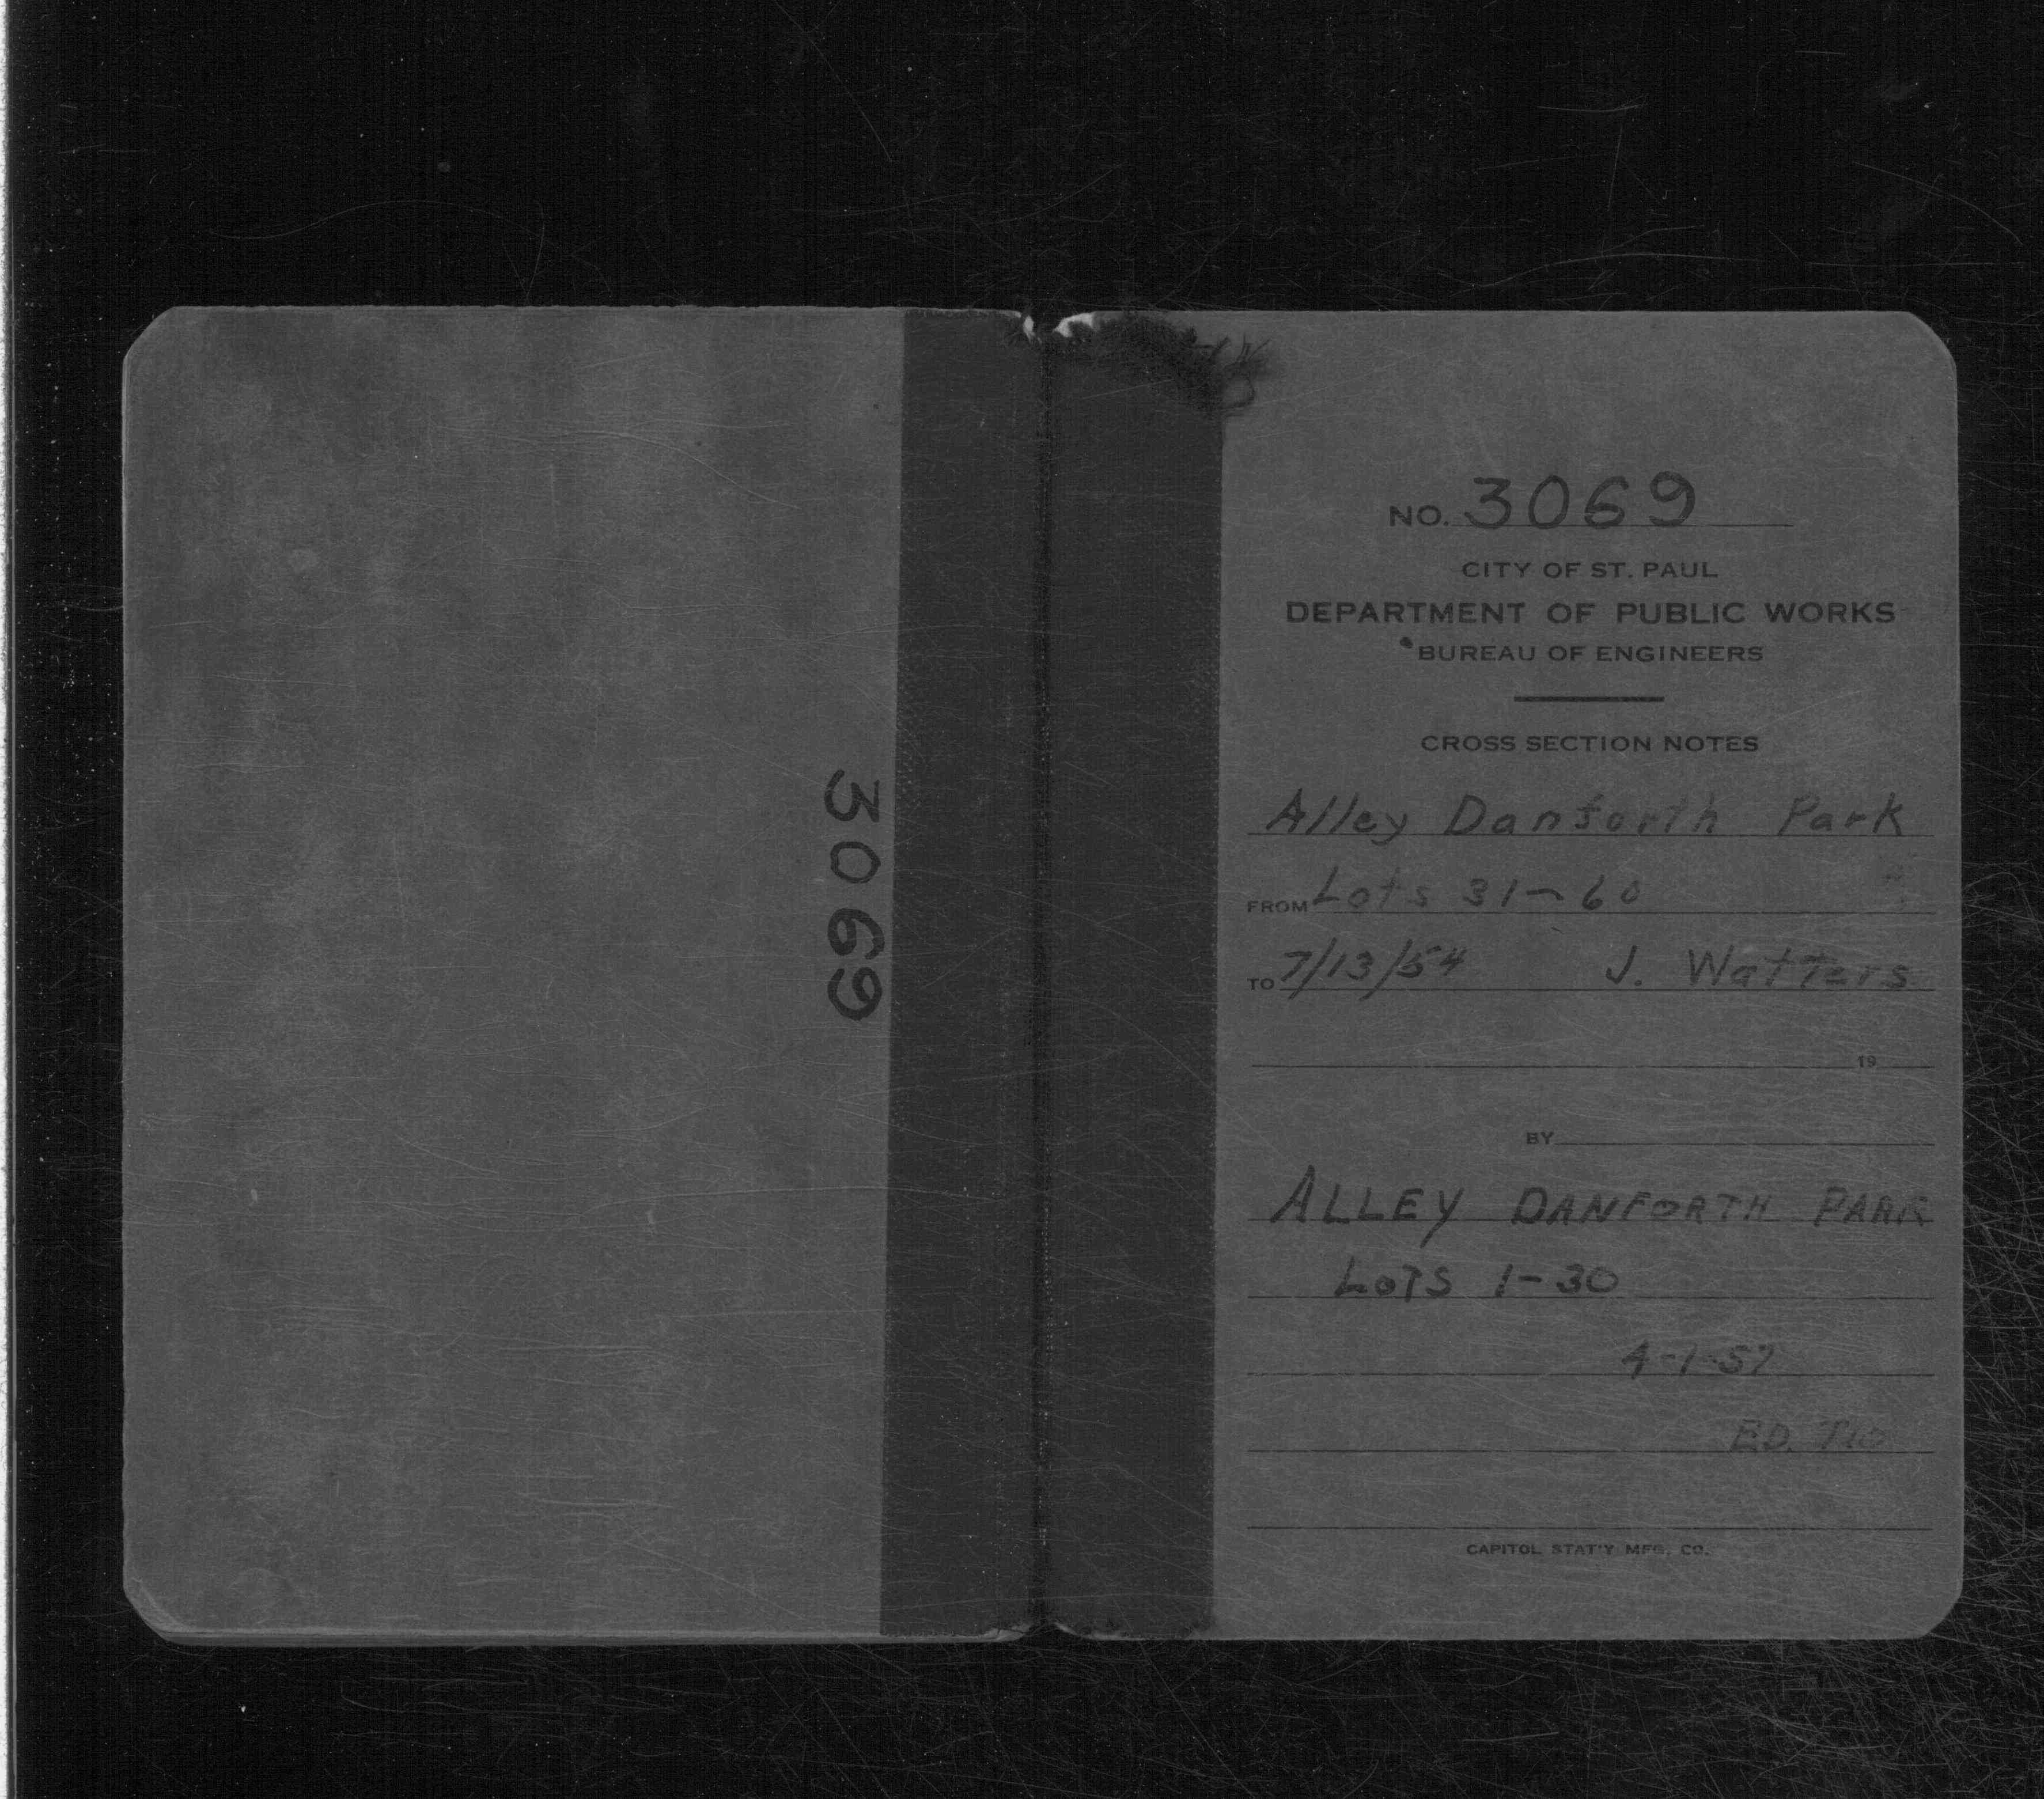 3069
NO. 3069
CITY OF ST. PAUL
DEPARTMENT OF PUBLIC WORKS
BUREAU OF ENGINEERS
CROSS SECTION NOTES
Alley Danforth Park
FROM Lots 31-60
TO 7/13/54 J. Watters
19
BY
ALLEY DANFORTH PARK
LOTS 1-30
4-1-57
ED.
CAPITOL STAT'Y MFG. CO.